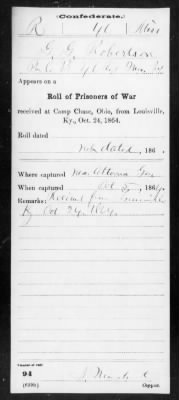 Confederate.
R 41 Miss
G. G. Robertson
Appears on a
Roll of Prisoners of War
received at Camp Chase, Ohio, from Louisville,
Ky., Oct. 24, 1864.
Roll dated
Not dated, 186 .
Where captured Near Altoona Ga
When captured Oct 5, 1864.
Remarks: Received from Louisville
Ky Oct 24, 1864
94
Copyist.